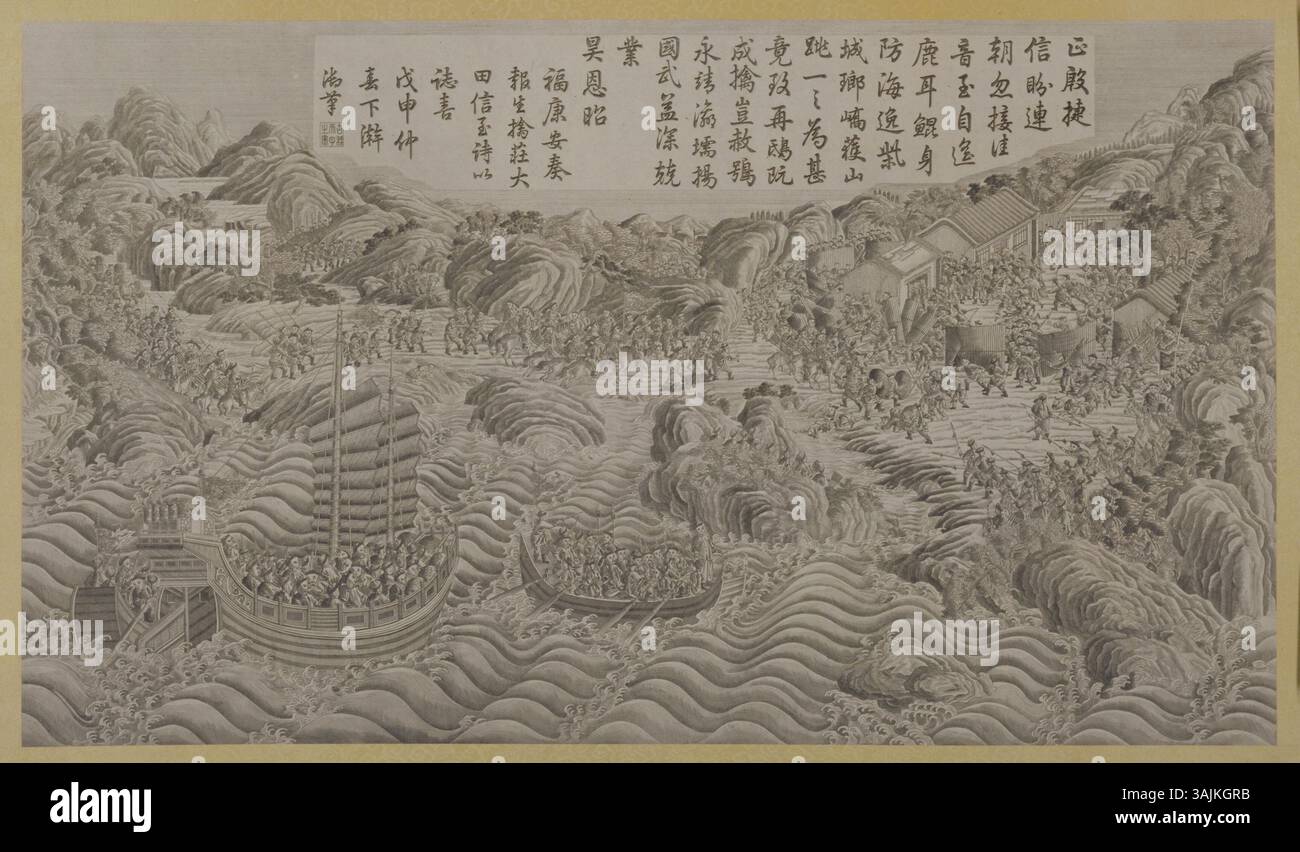 正殷捷
信盼連
朝忽接佳
音至自遙
鹿耳鯤身
防海逸
城瑯嶠獲山
跳一之為甚
竟致再鴟阮
成擒豈赦鴞
永靖瀛壖揚
國武益深兢
業
昊恩昭
福康安奏
報生擒莊大
田信至詩以
誌喜
戊申仲
春下澣
御筆
alamy
alamy
Image ID: 3AJKGRB
www.alamy.com